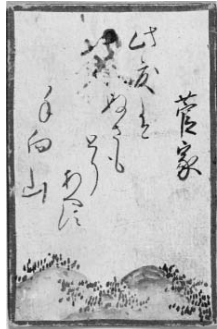 菅家
此度は
ぬさも
とり
あへす
手向山